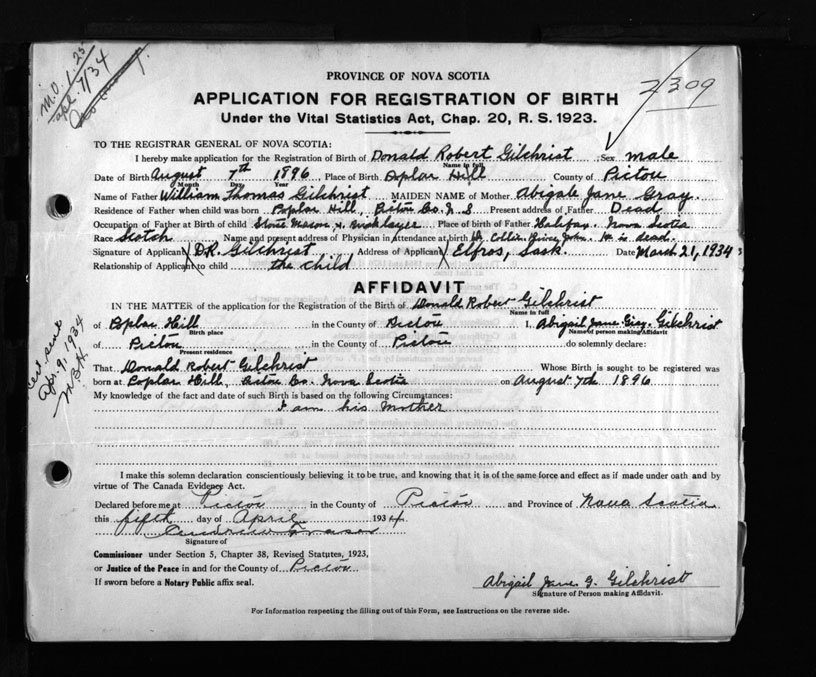 M.O. 1.25
Apl. 7/34
2309
PROVINCE OF NOVA SCOTIA
APPLICATION FOR REGISTRATION OF BIRTH
Under the Vital Statistics Act, Chap. 20, R. S. 1923.
TO THE REGISTRAR GENERAL OF NOVA SCOTIA:
I hereby make application for the Registration of Birth of Donald Robert Gilchrist Sex male
Name in full
Date of Birth August 7th 1896 Place of Birth Poplar Hill County of Pictou
Month Day Year
Name of Father William Thomas Gilchrist MAIDEN NAME of Mother Abigale Jane Gray
Residence of Father when child was born Poplar Hill, Pictou Co. N.S Present address of Father Dead
Occupation of Father at Birth of child Stone Mason & Bricklayer Place of birth of Father Halifax, Nova Scotia
Race Scotch Name and present address of Physician in attendance at birth Dr. Collie River John. He is dead.
Signature of Applicant D.R. Gilchrist Address of Applicant Elfros, Sask. Date March 21, 1934
Relationship of Applicant to child the child
AFFIDAVIT
IN THE MATTER of the application for the Registration of the Birth of Donald Robert Gilchrist
Name in full
of Poplar Hill in the County of Pictou I, Abigail Jane Gray Gilchrist
Birth place Name of person making Affidavit
of Pictou in the County of Pictou do solemnly declare:
Present residence
That Donald Robert Gilchrist Whose Birth is sought to be registered was
born at Poplar Hill, Pictou Co. Nova Scotia on August 7th 1896
My knowledge of the fact and date of such Birth is based on the following Circumstances:
I am his Mother
I make this solemn declaration conscientiously believing it to be true, and knowing that it is of the same force and effect as if made under oath and by
virtue of The Canada Evidence Act.
Declared before me at Pictou in the County of Pictou and Province of Nova Scotia
this fifth day of April 1934
Andrew Fraser
Signature of
Commissioner under Section 5, Chapter 38, Revised Statutes, 1923,
or Justice of the Peace in and for the County of Pictou
If sworn before a Notary Public affix seal.
Abigail Jane G. Gilchrist
Signature of Person making Affidavit.
For Information respecting the filling out of this Form, see Instructions on the reverse side.
Cert. sent
Apr. 9, 1934